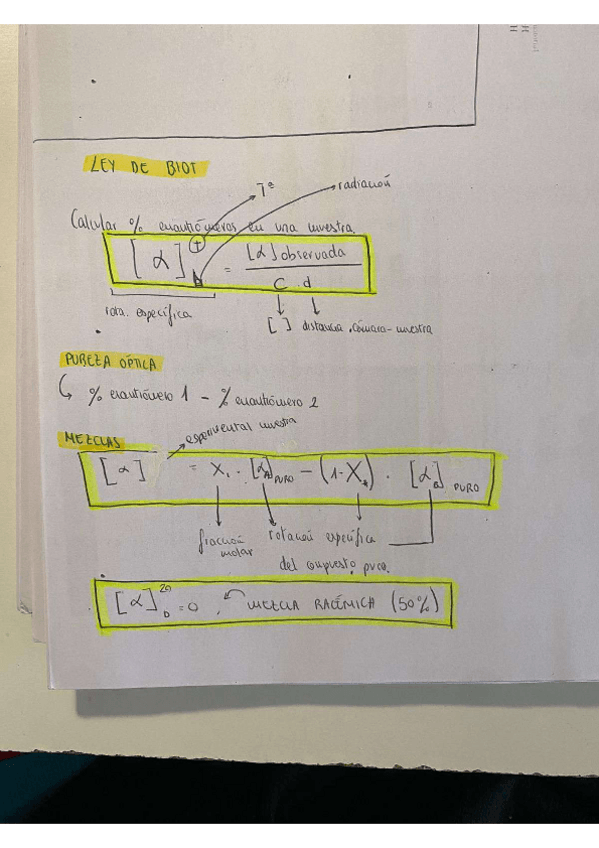 LEY DE BIOT
Tª
radiación
Calcular % enantiómeros en una muestra
[α] T D = [α] observada / C . d
rota. específica
[ ] distancia cámara - muestra
PUREZA ÓPTICA
↳ % enantiómero 1 - % enantiómero 2
MEZCLAS
experimental muestra
[α] = X₁ · [α] PURO - (1-X₁) · [α] PURO
fracción molar
rotación específica
del compuesto puro.
[α] 20 D = 0, MEZCLA RACÉMICA (50%)